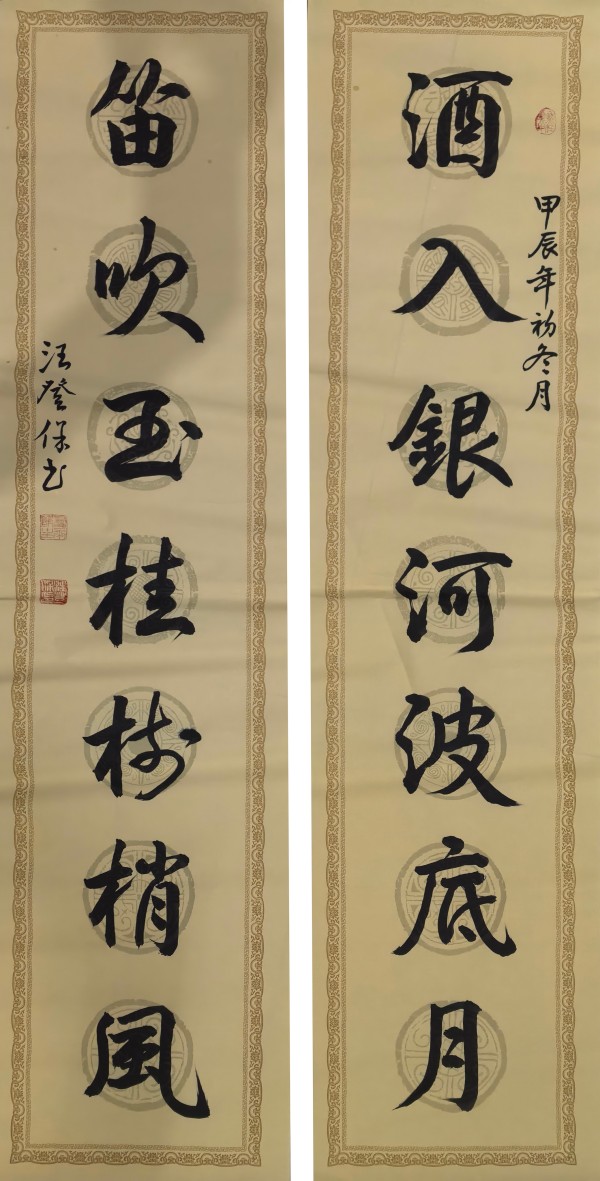 甲辰年初冬月
酒入銀河波底月
笛吹玉桂樹梢風
汪登保书